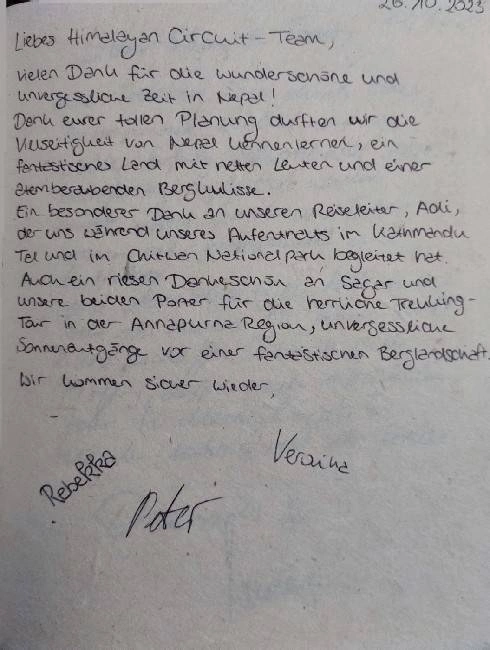 26.10.2023
Liebes Himalayan Circuit-Team,
vielen Dank für die wunderschöne und
unvergessliche Zeit in Nepal!
Dank eurer tollen Planung durften wir die
Vielseitigkeit von Nepal kennenlernen, ein
fantastisches Land mit netten Leuten und einer
atemberaubenden Bergkulisse.
Ein besonderer Dank an unseren Reiseleiter, Adi,
der uns während unseres Aufenthalts im Kathmandu
Tal und im Chitwan Nationalpark begleitet hat.
Auch ein riesen Dankeschön an Sagar und
unsere beiden Porter für die herrliche Trekking-
Tour in der Annapurna Region, unvergessliche
Sonnenaufgänge vor einer fantastischen Berglandschaft.
Wir kommen sicher wieder,
Verena
Rebekka
Peter